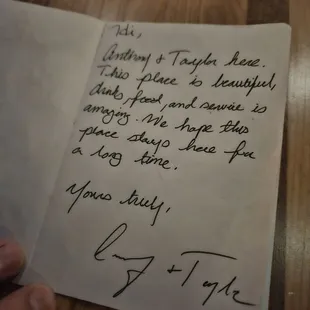 Hi,
Anthony & Taylor here.
This place is beautiful,
drinks, food, and service is
amazing. We hope this
place stays here for
a long time.
Yours truly,
+ Taylor